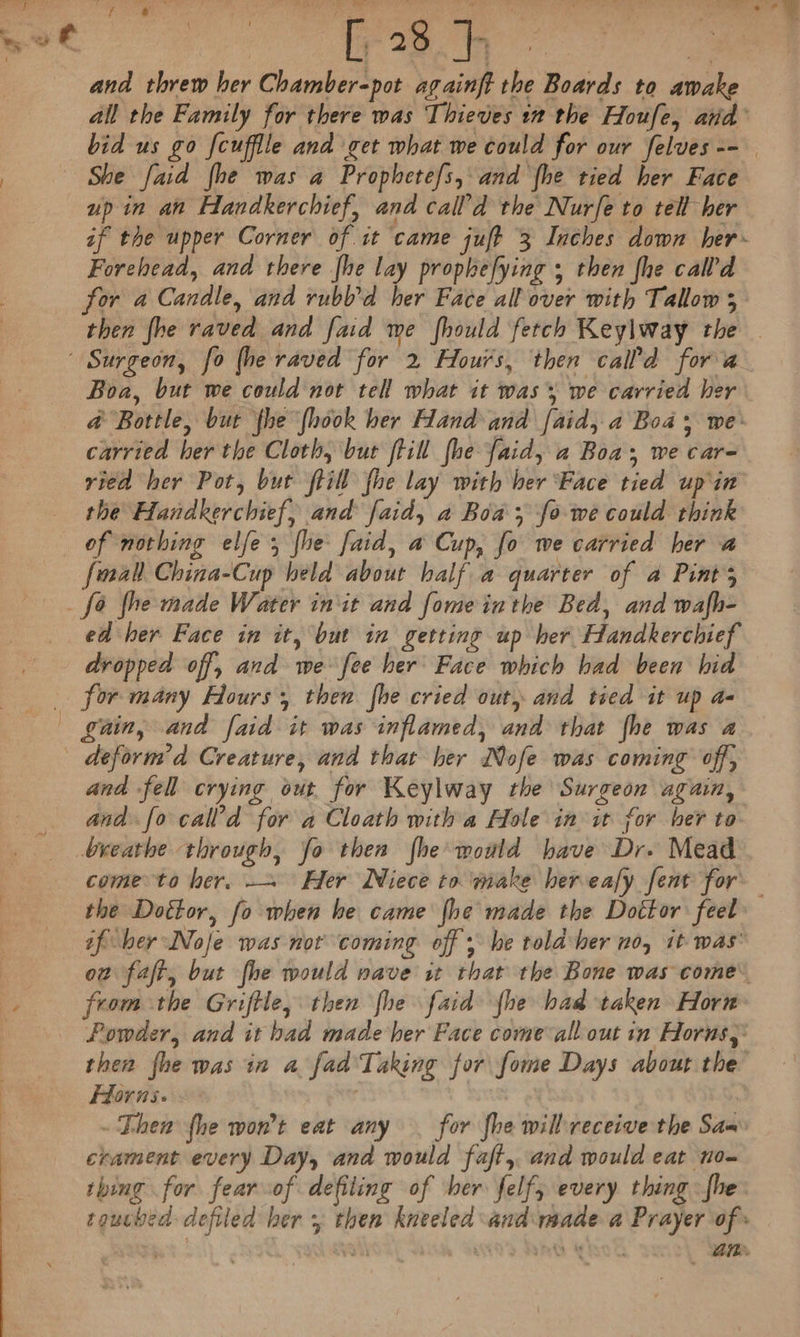 [ 28 ]
and threw her Chamber-pot againſt the Boards to awake
all the Family for there was Thieves in the Houſe, and
bid us go ſcuffle and get what we could for our ſelves --
She ſaid ſhe was a Propheteſs, and ſhe tied her Face
up in an Handkerchief, and call'd the Nurſe to tell her
if the upper Corner of it came juſt 3 Inches down her
Forehead, and there ſhe lay propheſying ; then ſhe call'd
for a Candle, and rubb'd her Face all over with Tallow ;
then ſhe raved and ſaid we ſhould fetch Keylway the
Surgeon, ſo ſhe raved for 2 Hours, then call'd for a
Boa, but we could not tell what it was ; we carried her
a Bottle, but ſhe ſhook her Hand and ſaid, a Boa ; we
carried her the Cloth, but ſtill ſhe ſaid, a Boa ; we car-
ried her Pot, but ſtill ſhe lay with her Face tied up in
the Handkerchief, and ſaid, a Boa ; ſo we could think
of nothing elſe ; ſhe ſaid, a Cup, ſo we carried her a
ſmall China-Cup held about half a quarter of a Pint ;
ſo ſhe made Water in it and ſome in the Bed, and waſh-
ed her Face in it, but in getting up her Handkerchief
dropped off, and we ſee her Face which had been hid
for many Hours ; then ſhe cried out, and tied it up a-
gain, and ſaid it was inflamed, and that ſhe was a
deform'd Creature, and that her Noſe was coming off,
and fell crying out for Keylway the Surgeon again,
and ſo call'd for a Cloath with a Hole in it for her to
breathe through, ſo then ſhe would have Dr. Mead
come to her. — Her Niece to make her eaſy ſent for
the Doctor, ſo when he came ſhe made the Doctor feel
if her Noſe was not coming off ; he told her no, it was
on faſt, but ſhe would nave it that the Bone was come
from the Griſtle, then ſhe ſaid ſhe had taken Horn
Powder, and it had made her Face come all out in Horns,
then ſhe was in a ſad Taking for ſome Days about the
Horns.
Then ſhe won't eat any for ſhe will receive the Sa-
crament every Day, and would faſt, and would eat no-
thing for fear of defiling of her ſelf, every thing ſhe
touched defiled her ; then kneeled and made a Prayer of
an